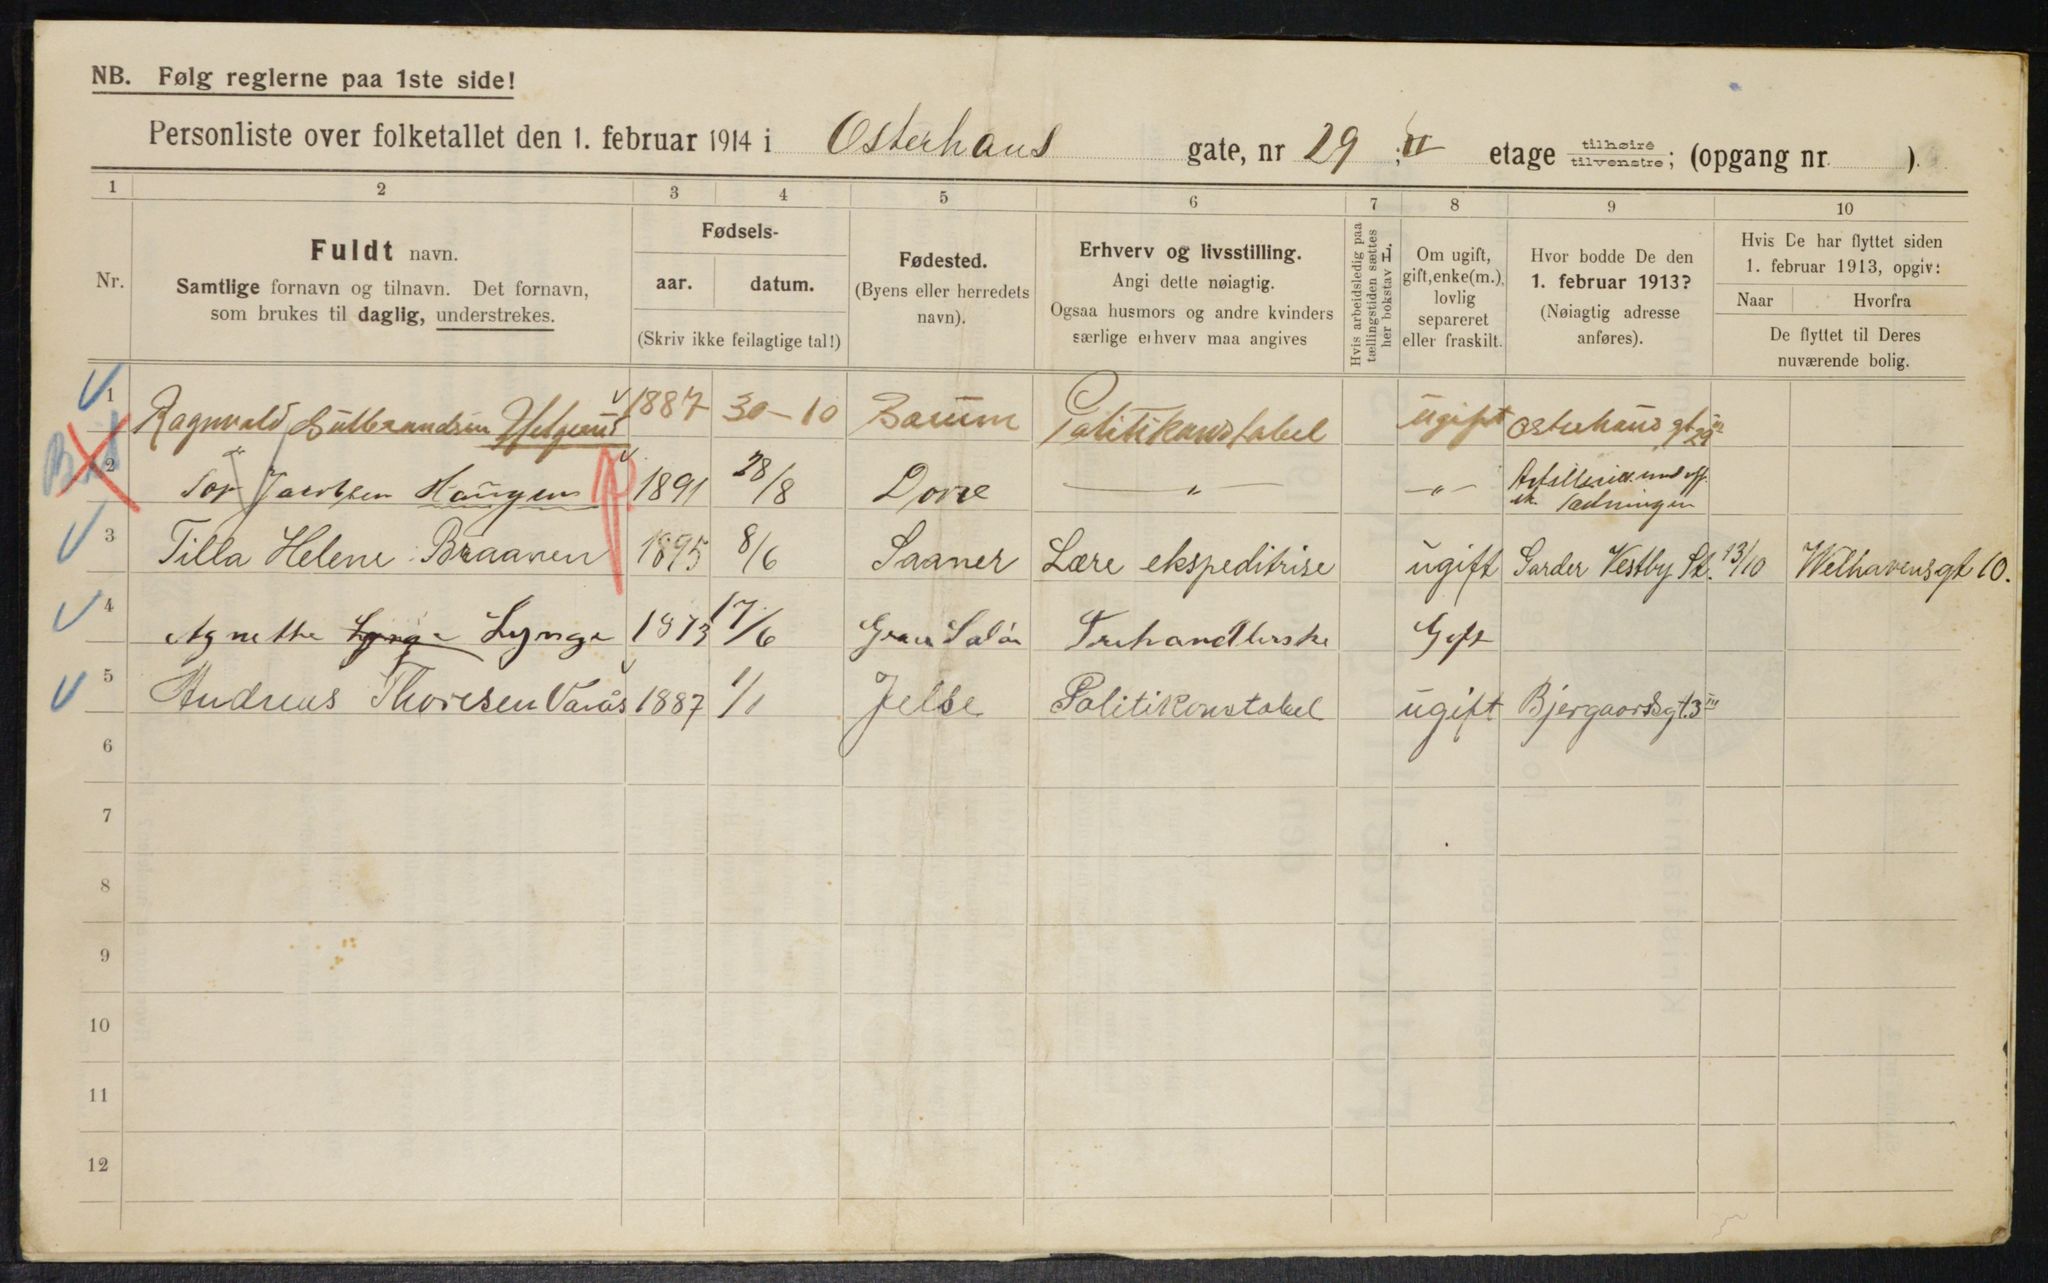 NB. Følg reglerne paa 1ste side!
Personliste over folketallet den 1. februar 1914 i Osterhaus gate, nr 29 ; II etage tilhøire tilvenstre; (opgang nr. ).
1 2 3 4 5 6 7 8 9 10
Nr.
Fuldt navn.
Samtlige fornavn og tilnavn. Det fornavn,
som brukes til daglig, understrekes.
Fødsels-
aar. datum.
(Skriv ikke feilagtige tal!)
Fødested.
(Byens eller herredets
navn).
Erhverv og livsstilling.
Angi dette nøiagtig.
Ogsaa husmors og andre kvinders
særlige erhverv maa angives
Hvis arbeidsledig paa
tællingstiden sættes
her bokstav L.
Om ugift,
gift, enke(m.),
lovlig
separeret
eller fraskilt.
Hvor bodde De den
1. februar 1913?
(Nøiagtig adresse
anføres).
Hvis De har flyttet siden
1. februar 1913, opgiv:
Naar Hvorfra
De flyttet til Deres
nuværende bolig.
1 Ragnvald Gulbrandsen 1887 30-10 Barum Politikonstabel ugift Osterhaus gt 29 III
2 Tor Jacobsen Haugen 1891 28/8 Dovre — „ — — „ —
3 Tilla Helene Braanen 1895 8/6 Saaner Lære ekspeditrise ugift Garder Vestby St. 13/10 Welhavensgt 10.
4 Agnethe Lynge Lynge 1873 17/6 Gift
5 Andreas Thoresen Varås 1887 1/1 Jelse Politikonstabel ugift Bjergaardsgt. 3 III
6
7
8
9
10
11
12